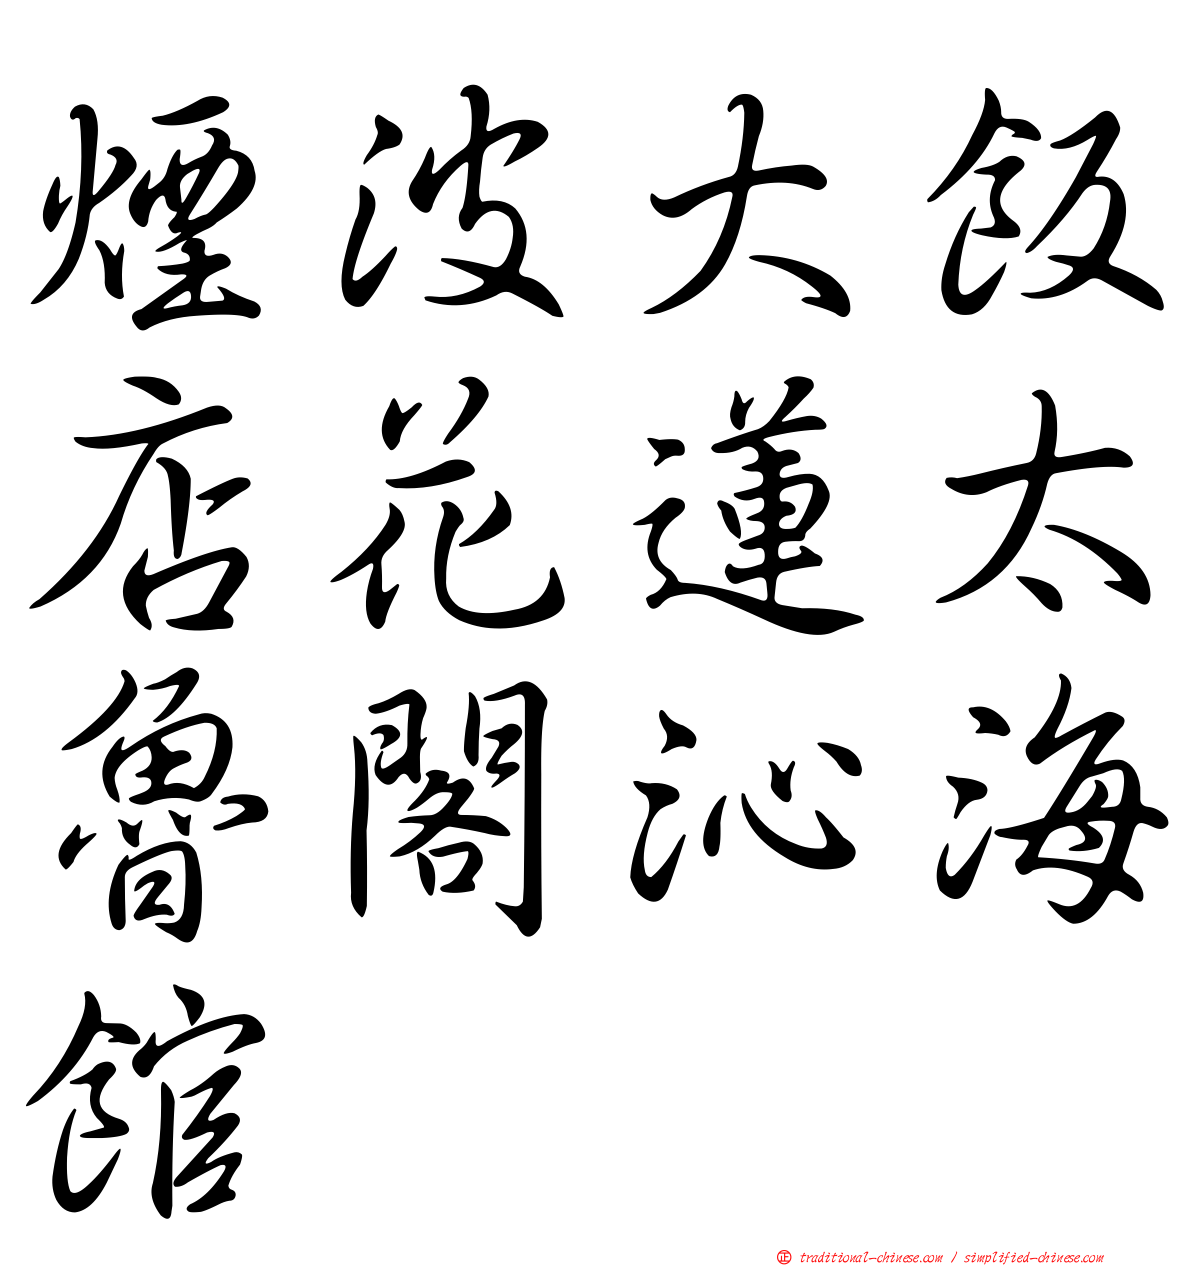 煙波大飯
店花蓮太
魯閣沁海
館
正 traditional-chinese.com / simplified-chinese.com